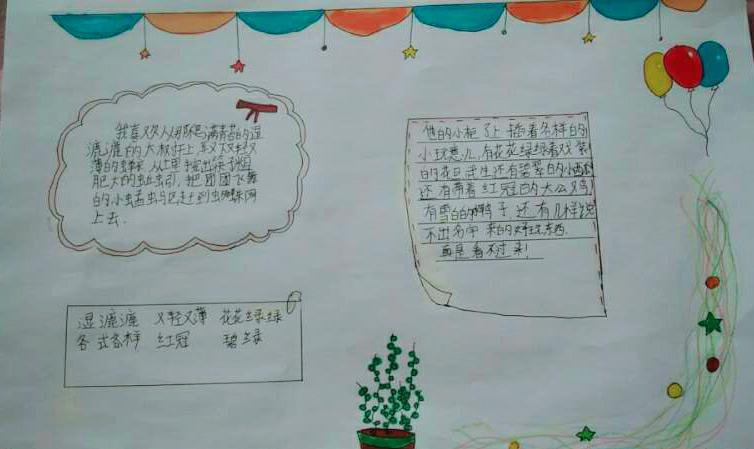 我喜欢从那长满青苔的湿
漉漉的大树上,取又轻又
薄的蝉蜕,从土里挖出筷子粗
肥大的蚯蚓,把团团飞舞
的小虫孟虫赶到蜘蛛网
上去.
湿漉漉 又轻又薄 花花绿绿
各式各样 红冠 碧绿
的小柜子上 插着各样的
小玩意儿,有花花绿绿
的花旦武生还有碧翠的小西
还有带着红冠的大公鸡
有雪白的鸭子 还有几样说
不出名字来的好玩东西.
真是看不过来!